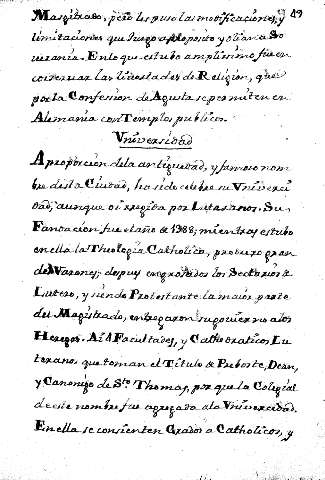 49
Magistrado, pero les puso las modificaciones, y
limitaciones que juzgo a proposito y olian a So
verania. En lo que estubo amplissimo fue en
conservar las livertades de Religion, que
por la Confesion de Agusta se permiten en
Alemania con Templos publicos.
Vniversidad
A proporcion de la antiguedad, y famoso nom
bre desta Ciudad, ha sido celebre su Vniversi
dad, aunque oi regida por Luteranos. Su
Fundacion fue el año de 1388; mientras estubo
en ella la Theologia Catholica, produxo gran
des Varones; despues engrosados los Sectarios de
Lutero, y siendo Protestante la maior parte
del Magistrado, entregaron su govierno a los
Hereges. Ai 4 Facultades, y Cathedraticos Lu
teranos que toman el Titulo de Preboste, Dean,
y Canonigo de Sto. Thomas, por que la Colegial
de este nombre fue agregada a la Vniversidad.
En ella se consienten Grados a Catholicos, y